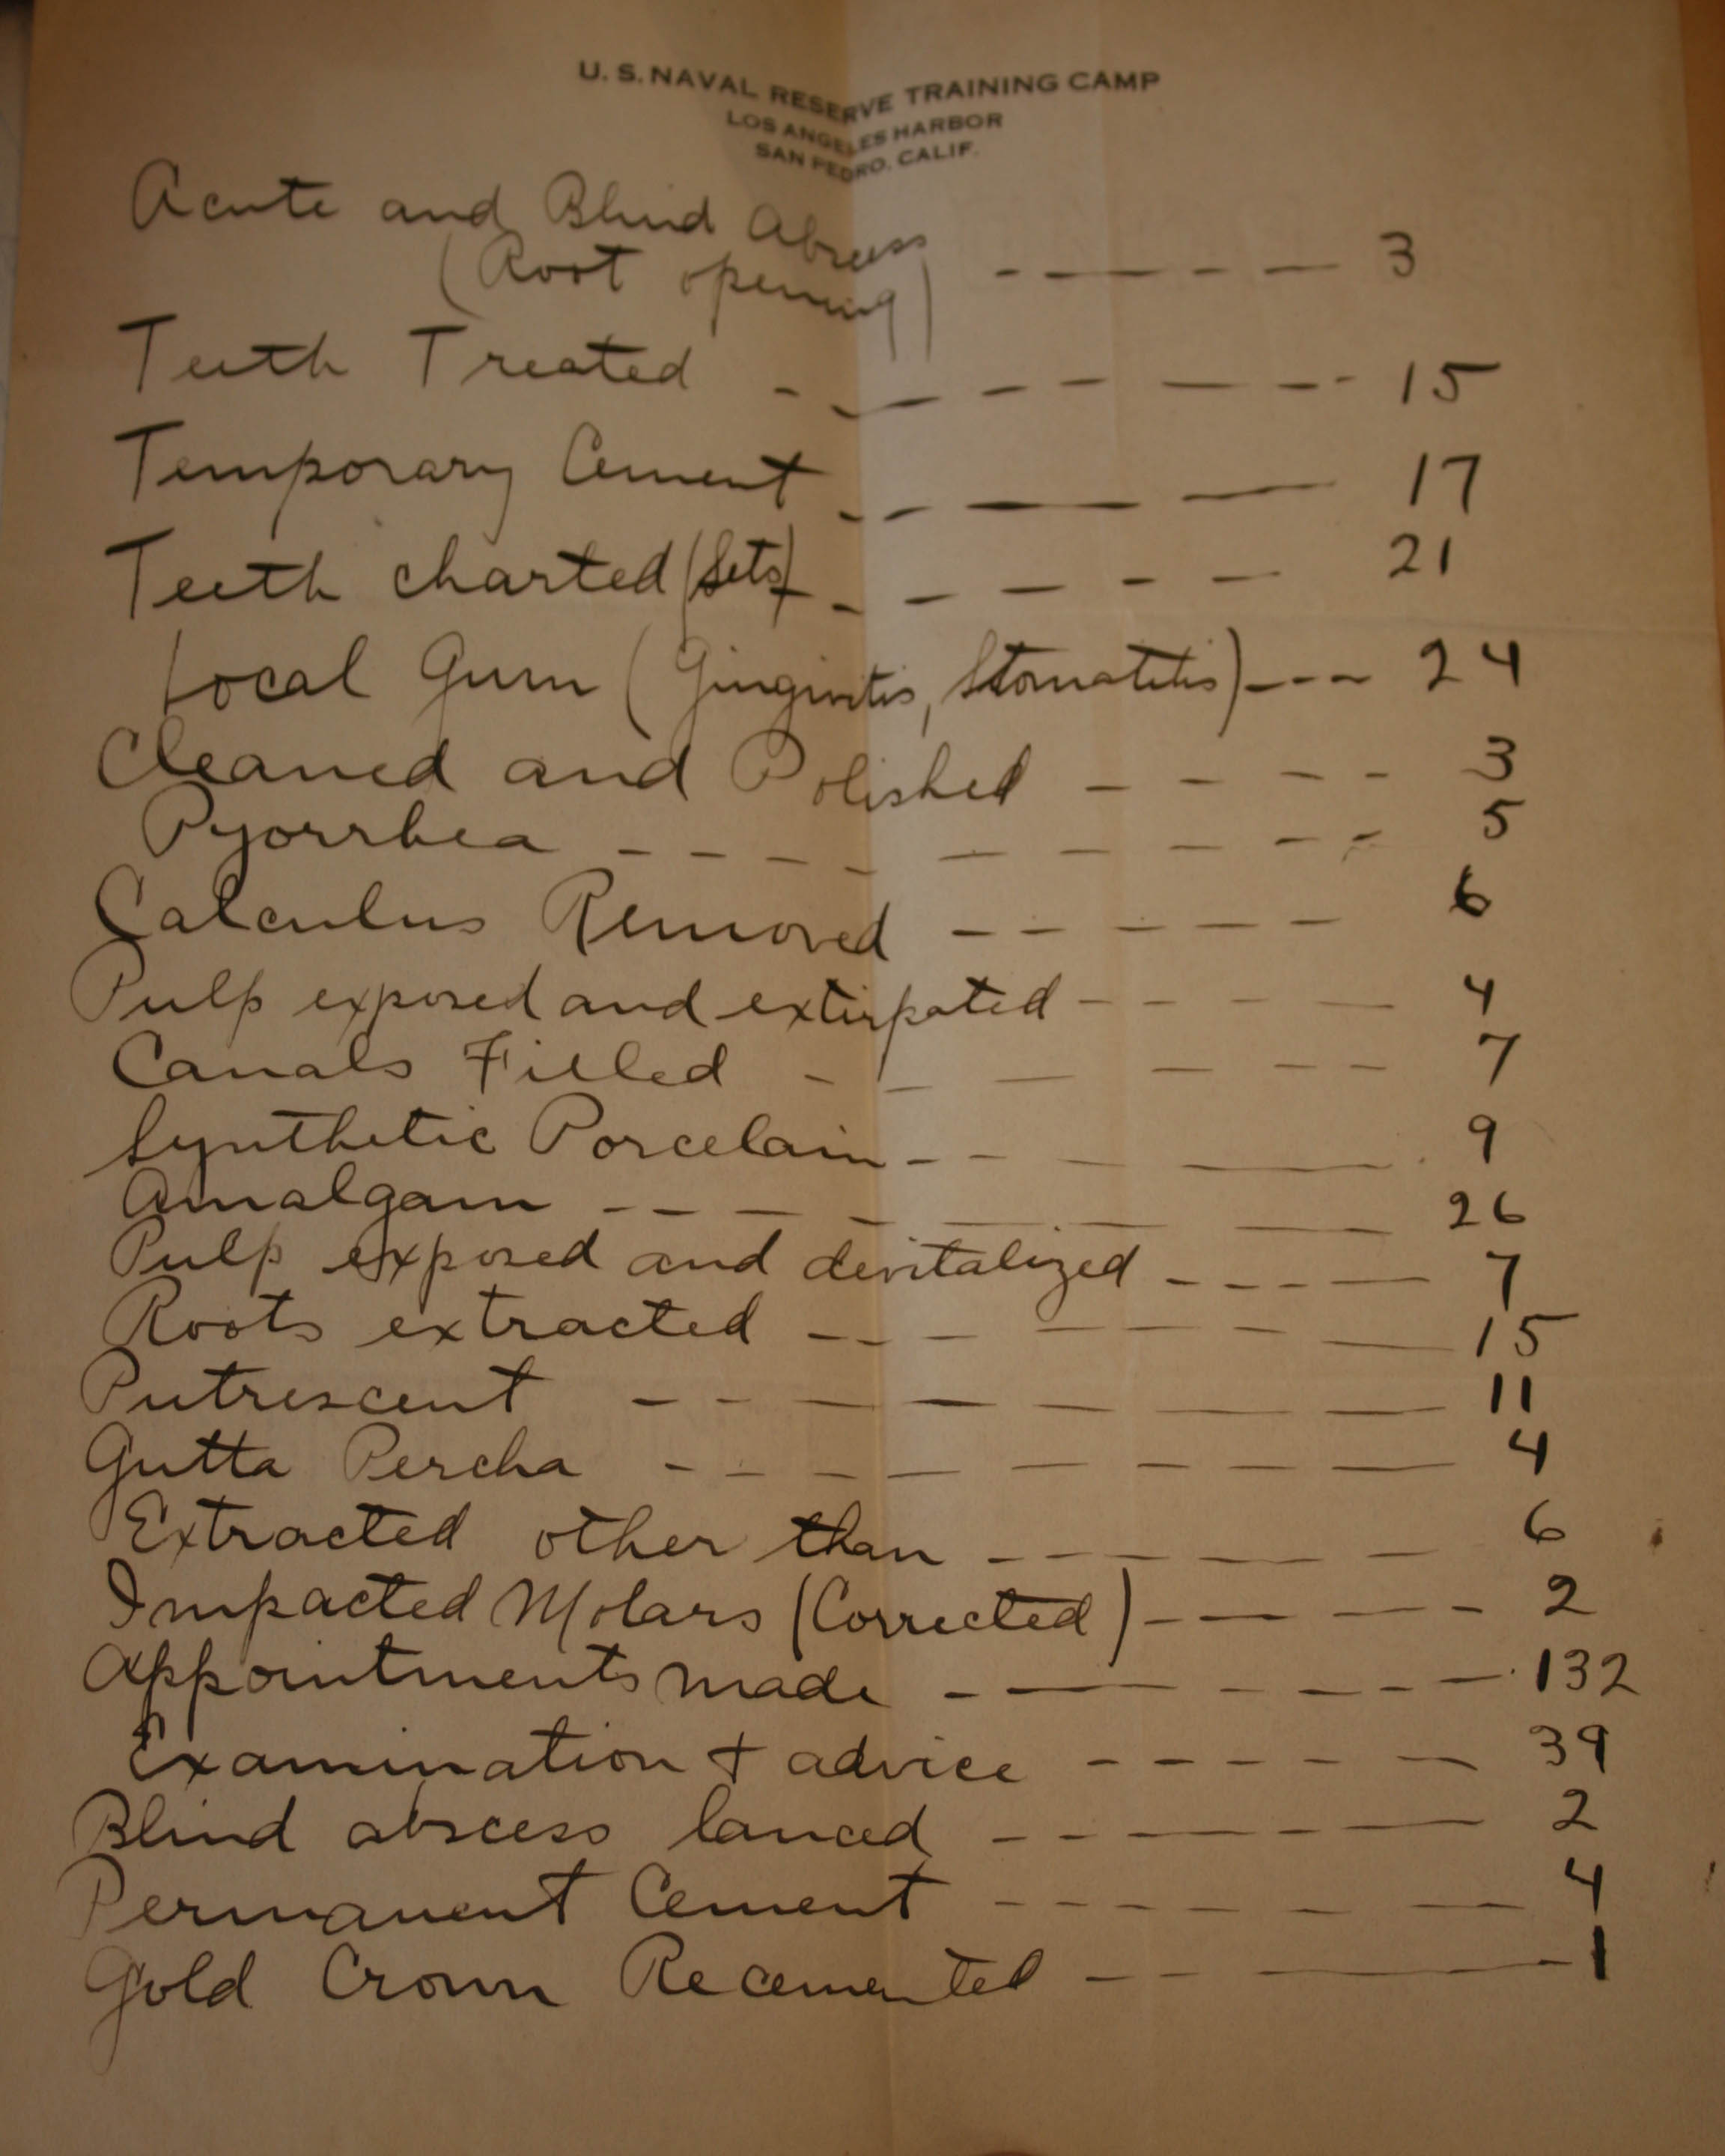 U. S. NAVAL RESERVE TRAINING CAMP
LOS ANGELES HARBOR
SAN PEDRO, CALIF.
Acute and Blind Abscess
(Root opening) - — - - — 3
Teeth Treated - - — - - — - - 15
Temporary Cement - - — — — 17
Teeth charted (Sets) - - - — - — 21
Local Gum (Gingivitis, Stomatitis) - - - 24
Cleaned and Polished - - - - 3
Pyorrhea - - - - - - - - - - 5
Calculus Removed - - - - - - 6
Pulp exposed and extirpated - - - - — 4
Canals Filled - - — - - - 7
Synthetic Porcelain - - - — — 9
Amalgam - - - - — - — — 26
Pulp exposed and devitalized - - - - — 7
Roots extracted - - - — - - — 15
Putrescent - - - — — — — 11
Gutta Percha - - - - - - - - — 4
Extracted other than - - - - - - 6
Impacted Molars (Corrected) - — — - - 2
Appointments made - — - - - - — 132
Examination + advice - - - - — 39
Blind abscess lanced - - - — - — 2
Permanent Cement - - - - - — — 4
Gold Crown Recemented - - — — - 1